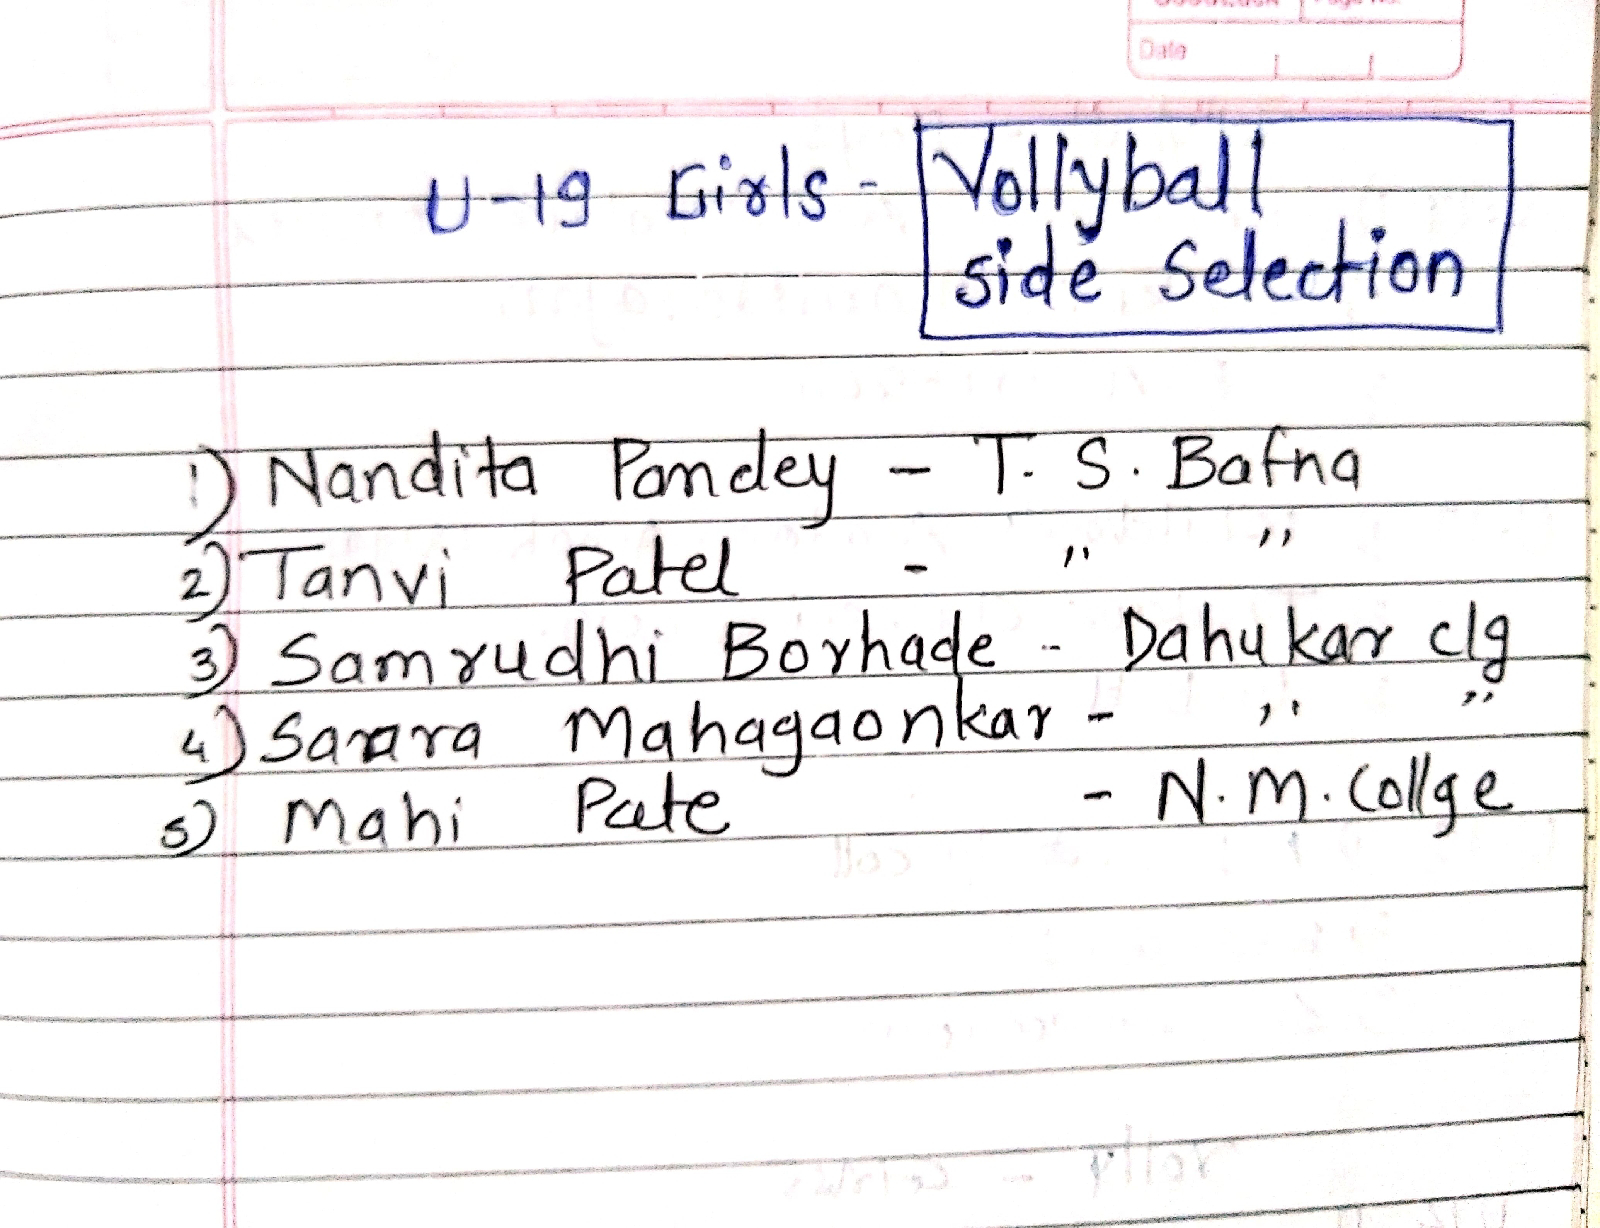 Date
U-19 Girls - Vollyball
side Selection
1) Nandita Pandey - T. S. Bafna
2) Tanvi Patel - " "
3) Samrudhi Borhade - Dahukar clg
4) Sarara Mahagaonkar - " "
5) Mahi Pate - N.M. Collge